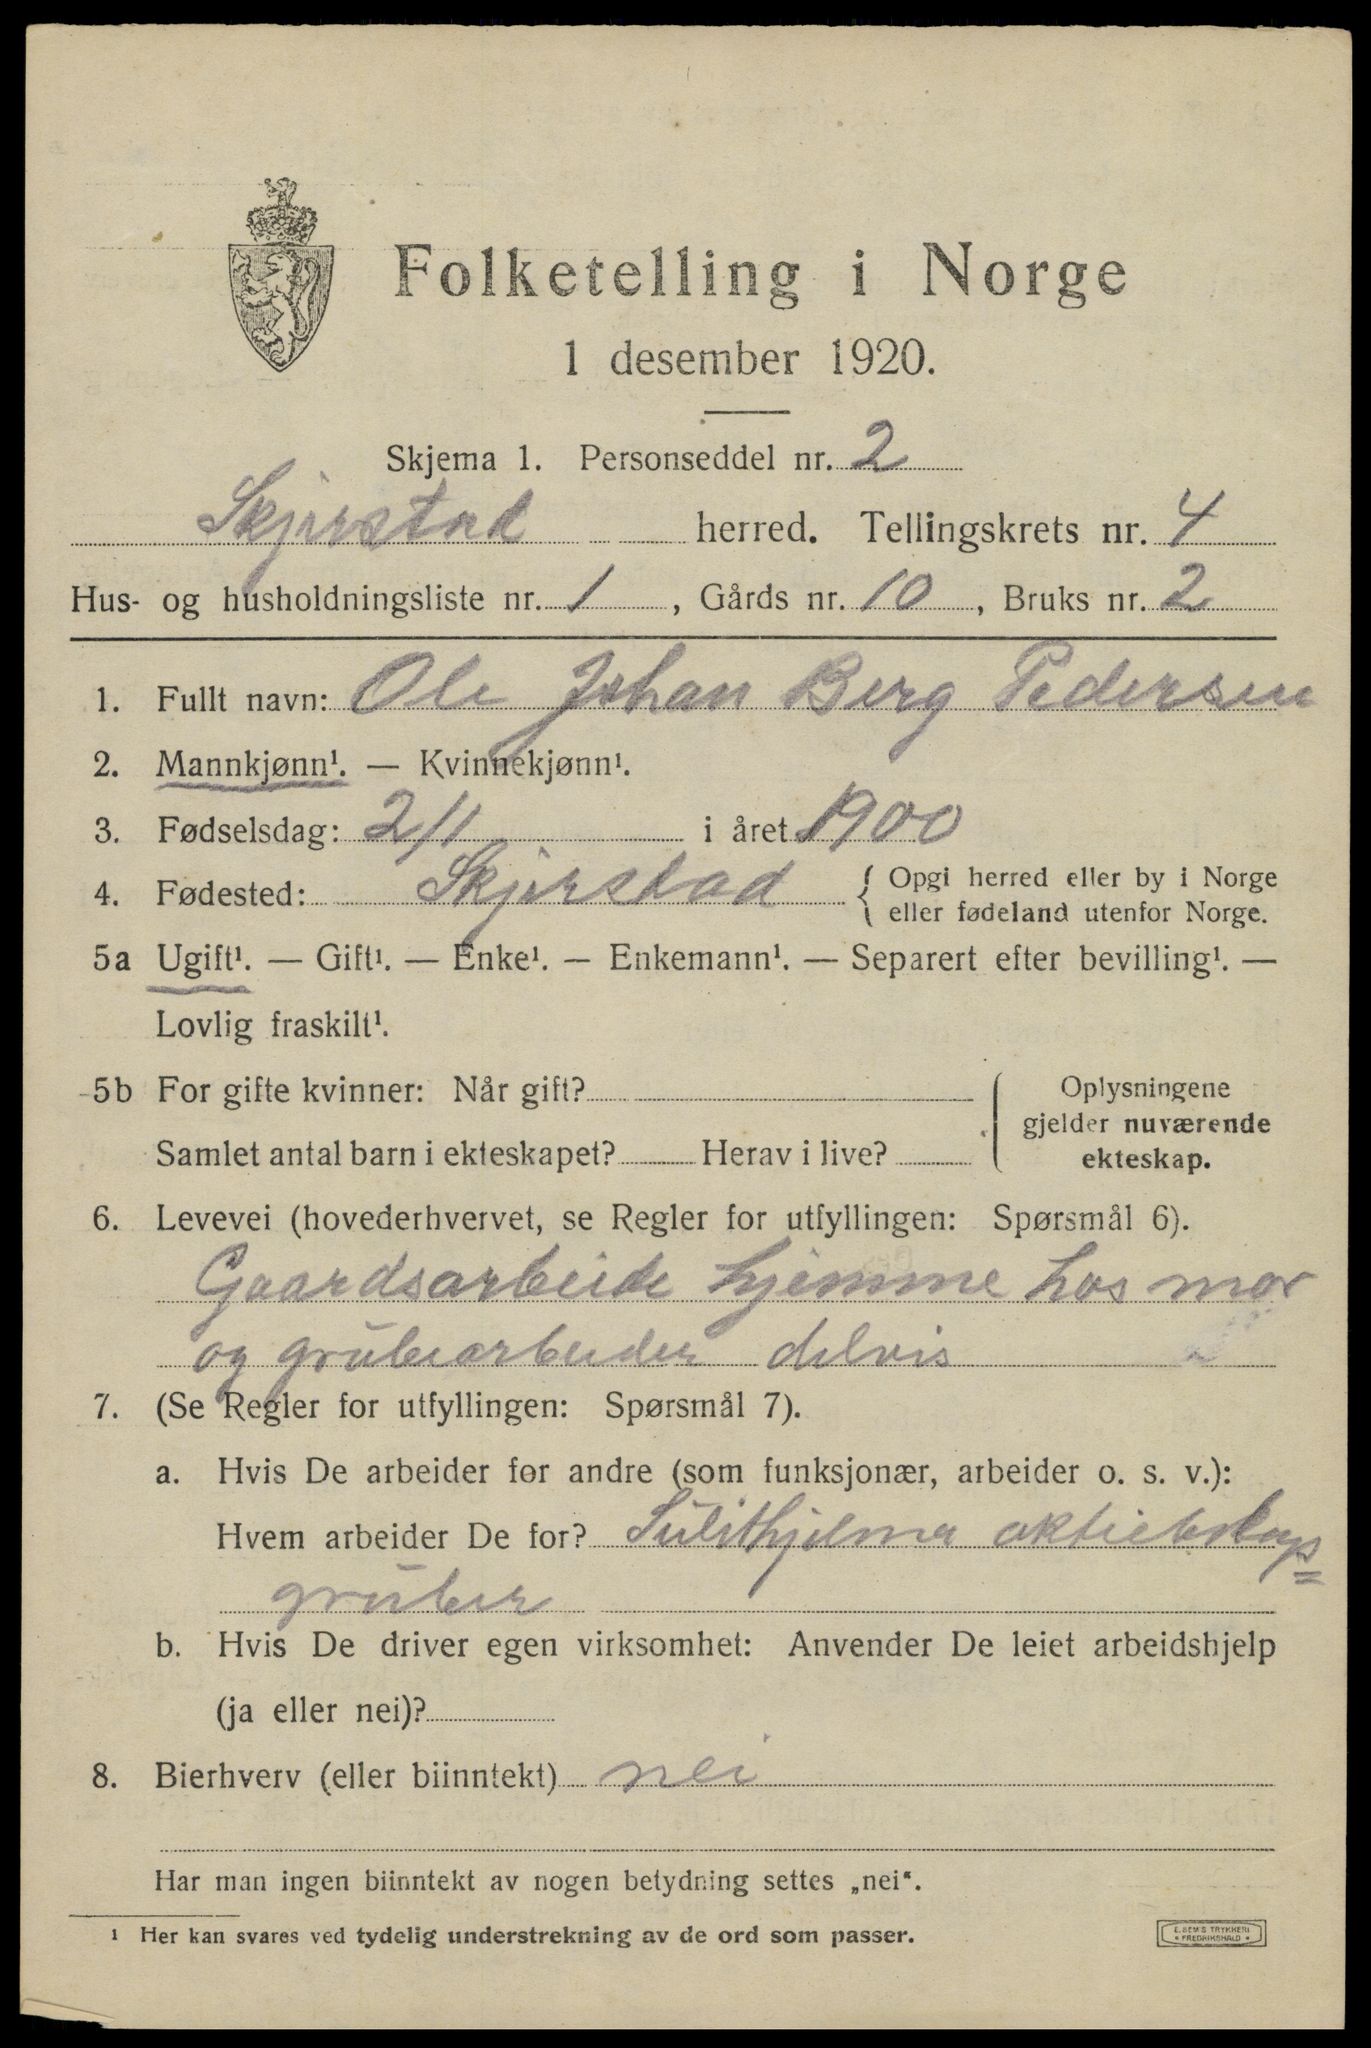 Folketelling i Norge
1 desember 1920.
Skjema 1. Personseddel nr. 2
Skjerstad herred. Tellingskrets nr. 4
Hus- og husholdningsliste nr. 1, Gårds nr. 10, Bruks nr. 2
1. Fullt navn: Ole Johan Berg Pedersen
2. Mannkjønn¹. — Kvinnekjønn¹.
3. Fødselsdag: 2/1 i året 1900
4. Fødested: Skjerstad { Opgi herred eller by i Norge
eller fødeland utenfor Norge.
5a Ugift¹. — Gift¹. — Enke¹. — Enkemann¹. — Separert efter bevilling¹. —
Lovlig fraskilt¹.
5b For gifte kvinner: Når gift?
Samlet antal barn i ekteskapet? Herav i live?
Oplysningene
gjelder nuværende
ekteskap.
6. Levevei (hovederhvervet, se Regler for utfyllingen: Spørsmål 6).
Gaardsarbeide hjemme hos mor
og grubearbeider delvis
7. (Se Regler for utfyllingen: Spørsmål 7).
a. Hvis De arbeider for andre (som funksjonær, arbeider o. s. v.):
Hvem arbeider De for? Sulithjelma aktieselskaps=
gruber
b. Hvis De driver egen virksomhet: Anvender De leiet arbeidshjelp
(ja eller nei)?
8. Bierhverv (eller biinntekt) nei
Har man ingen biinntekt av nogen betydning settes „nei“.
¹ Her kan svares ved tydelig understrekning av de ord som passer.
E. SEM'S TRYKKERI
* FREDRIKSHALD *